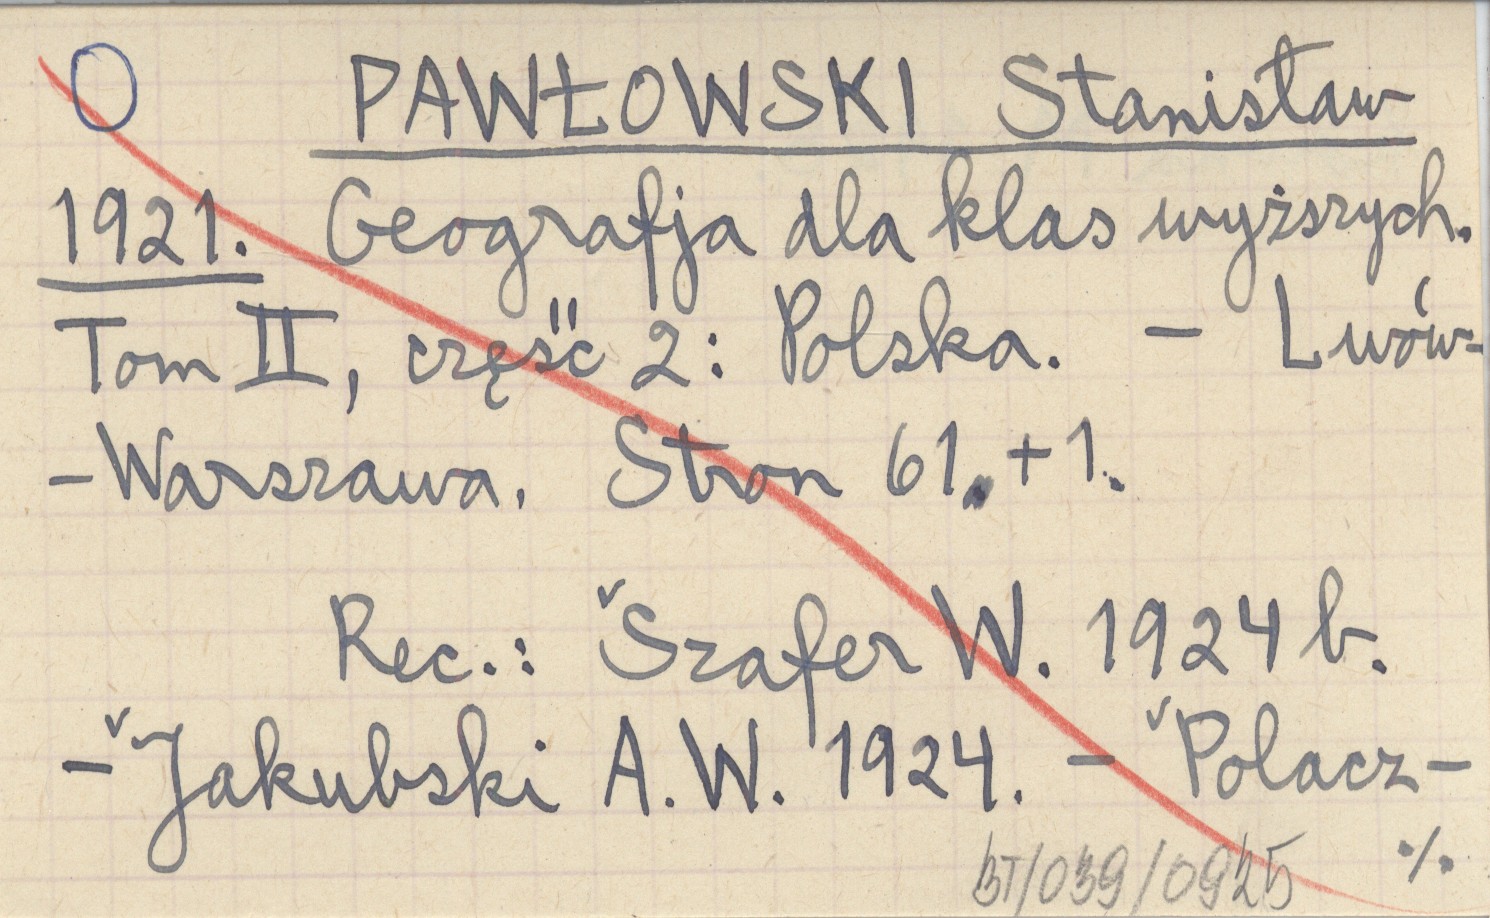 O PAWŁOWSKI Stanisław
1921. Geografja dla klas wyższych.
Tom II, część 2: Polska. - Lwów-
-Warszawa. Stron 61. + 1.
Rec.: ˇSzafer W. 1924 b.
- ˇJakubski A. W. 1924. - ˇPolacz-
./.
BT/039/0925